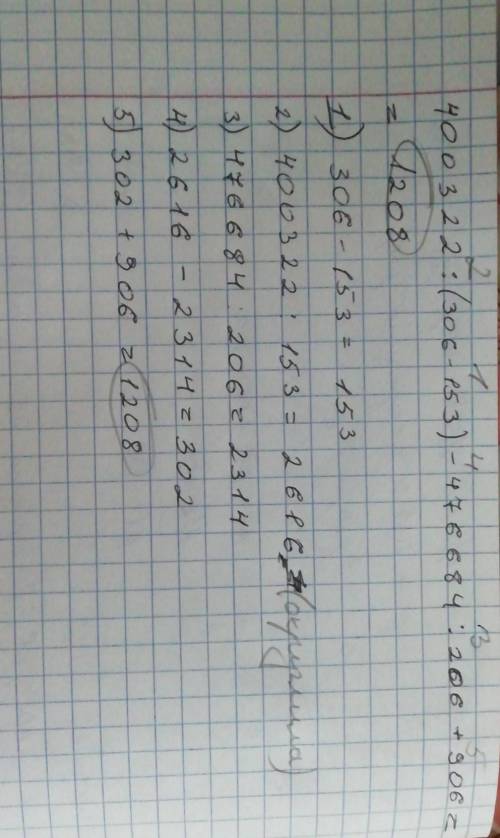 400322 : (306 - 153) - 476684 : 206 + 906 =
= 1208
1) 306 - 153 = 153
2) 400322 : 153 = 2616 (округлила)
3) 476684 : 206 = 2314
4) 2616 - 2314 = 302
5) 302 + 906 = 1208